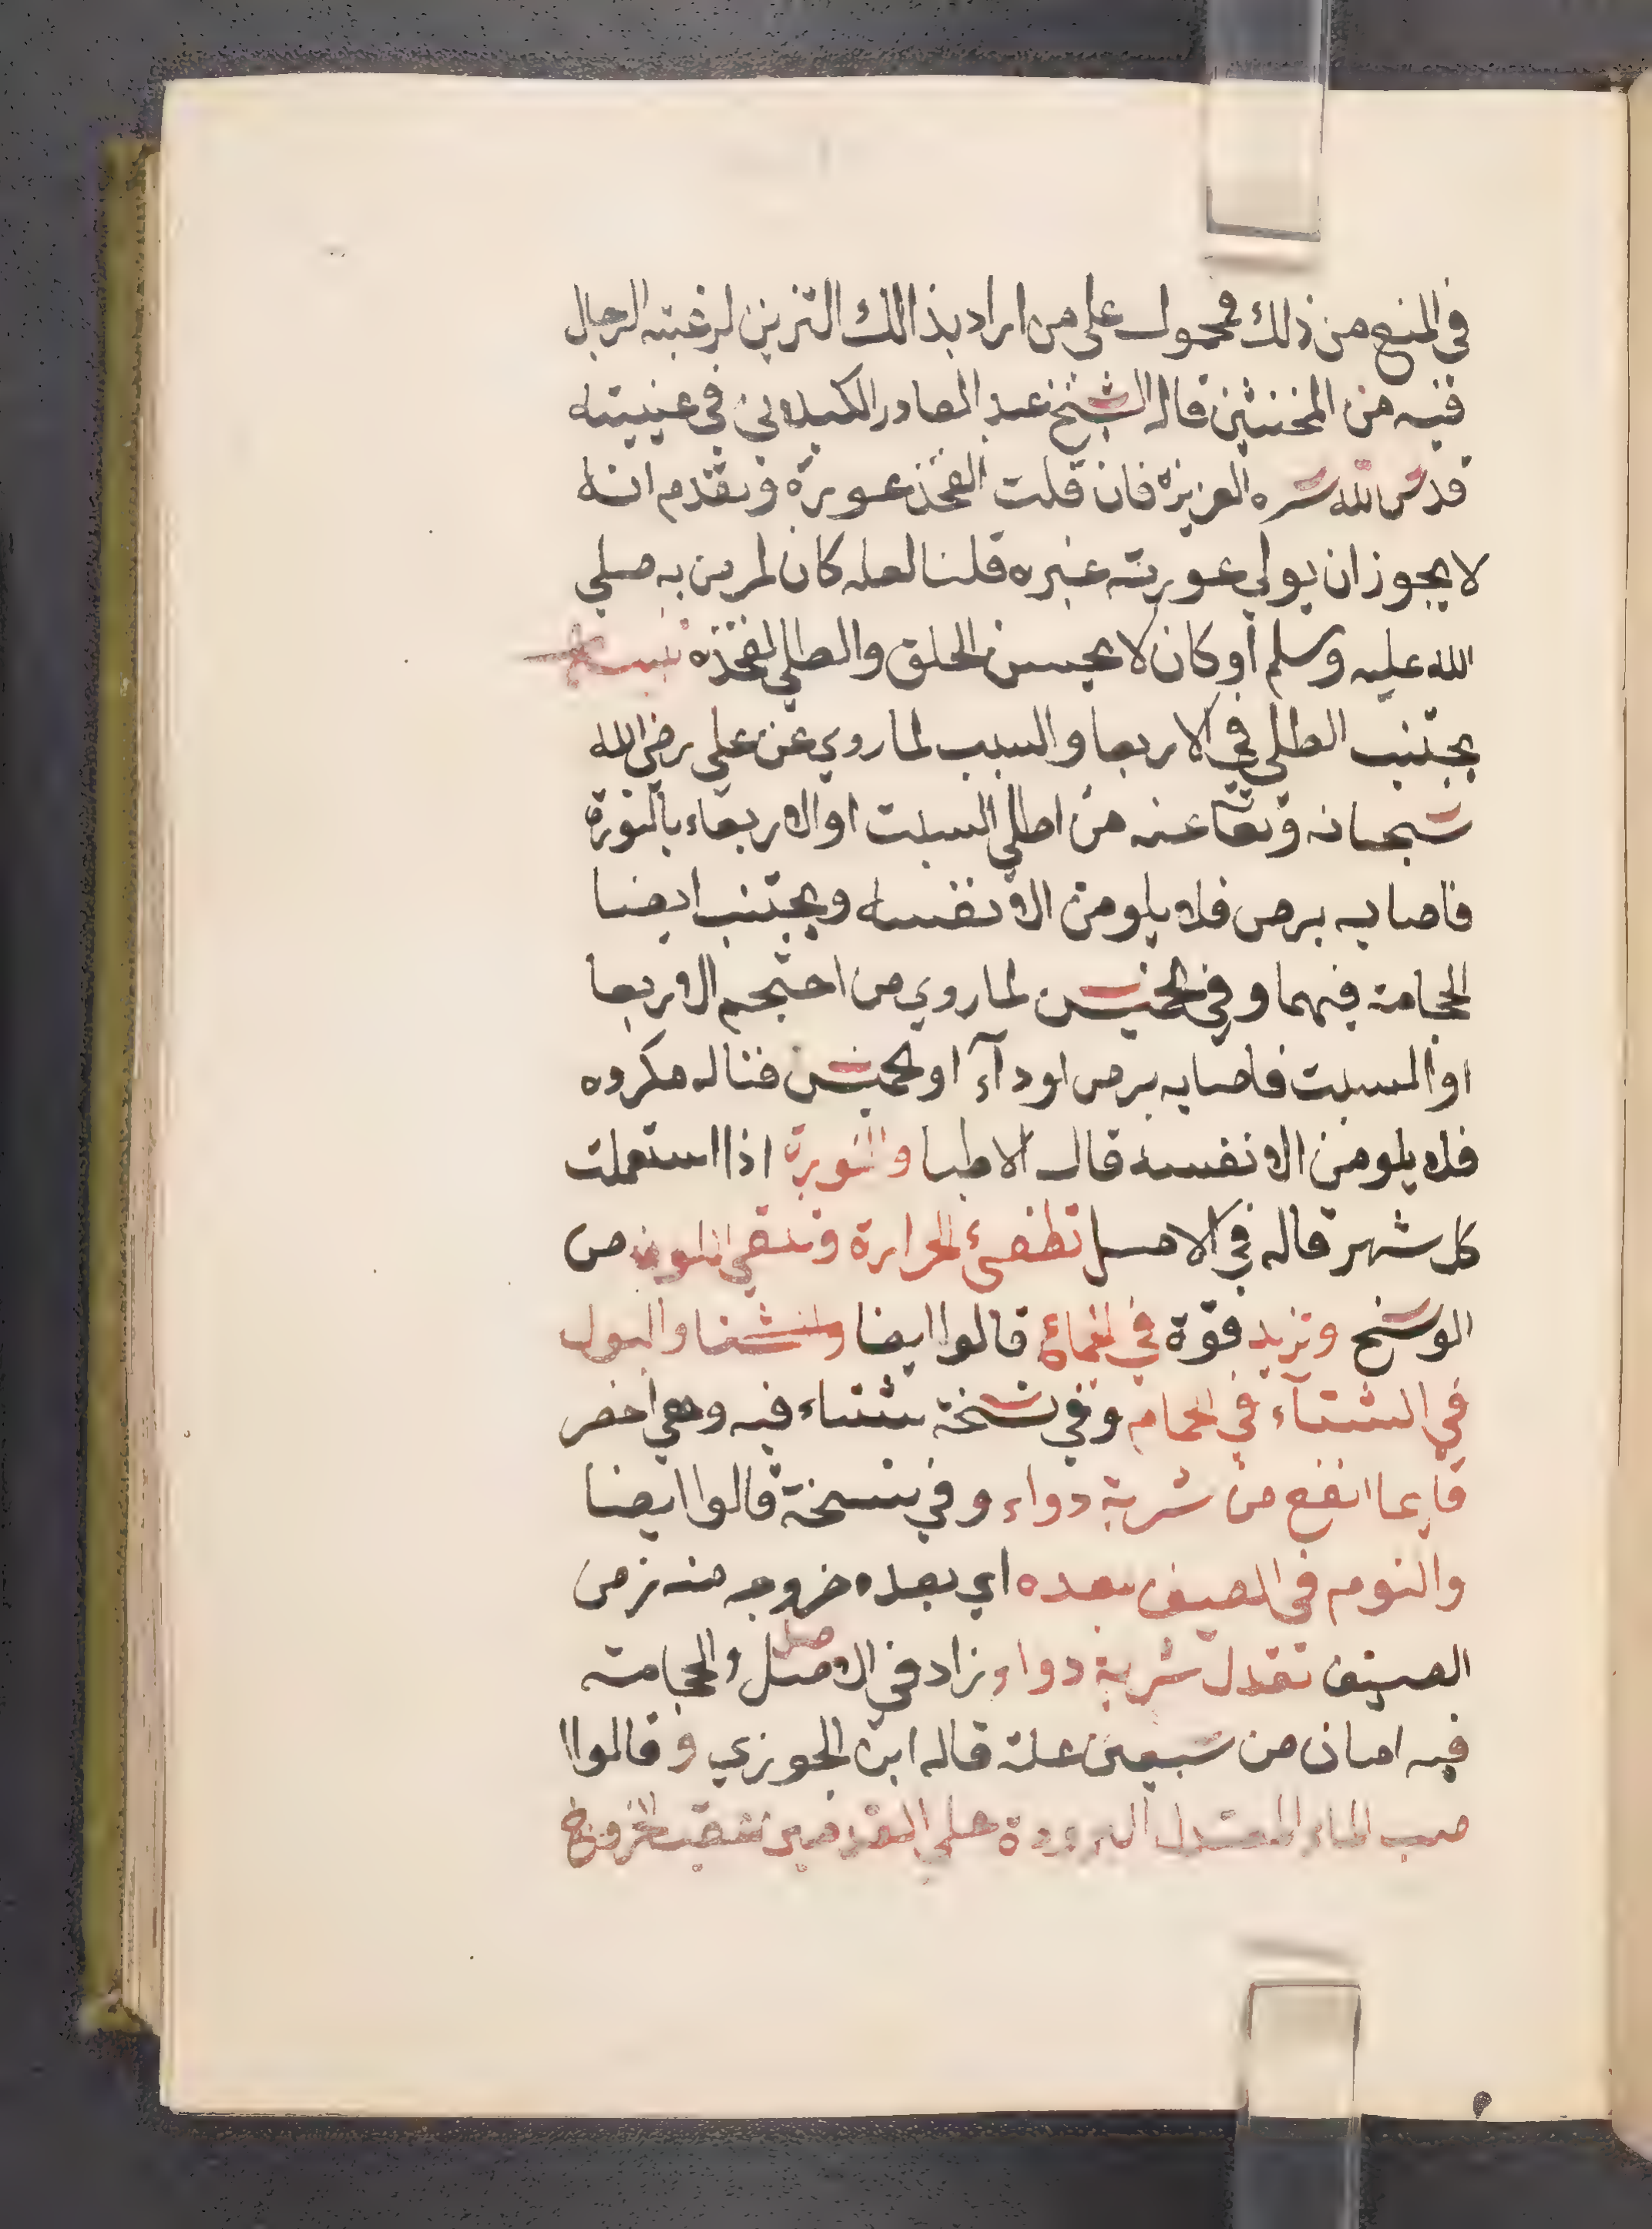 في المنع من ذلك فمحمول على من اراد بذالك التزين لرغبته الرجال
فيه من المخنثين قاله الشيخ عبد القادر الكيلاني في غنيته
قدس الله سره العزيزة فان قلت الفخذ عورة وتقدم انه
لا يجوز ان يولي عورته غيره قلنا لعله كان لمرض به صلي
الله عليه وسلم أو كان لا يحسن الحلق والطلي لفخذه
يجتنب الطلي في الاربعا والسبت لما روي عن علي رضي الله
سبحانه وتعا عنه من اطلي السبت او الاربعاء بالنورة
فاصابه برص فلا يلومن الا نفسه ويجتنب ايضا
الحجامة فيهما وفي الخميس لما روي من احتجم الاربعا
او السبت فاصابه برص او دآء او الخميس فناله مكروه
فلا يلومن الا نفسه قال الاطبا والنورة اذا استعملت
كل شهر قاله في الاصل تطفئ الحرارة وتنقي اللون من
الوسخ وتزيد قوة في الجماع قالوا ايضا والبول
في الشتآء في الحمام وفي نسخة شتاء فيه وهي اخصر
قايما انفع من شربة دواء وفي نسخة قالوا ايضا
والنوم في الصيف بعده اي بعده خروجه منه زمن
الصيف تعدل شربة دواء زاد في الاصل والحجامة
فيه امان من سبعين علة قاله ابن الجوزي وقالوا
صب الماء المعتدل البرودة علي القدمين عقب الخروج